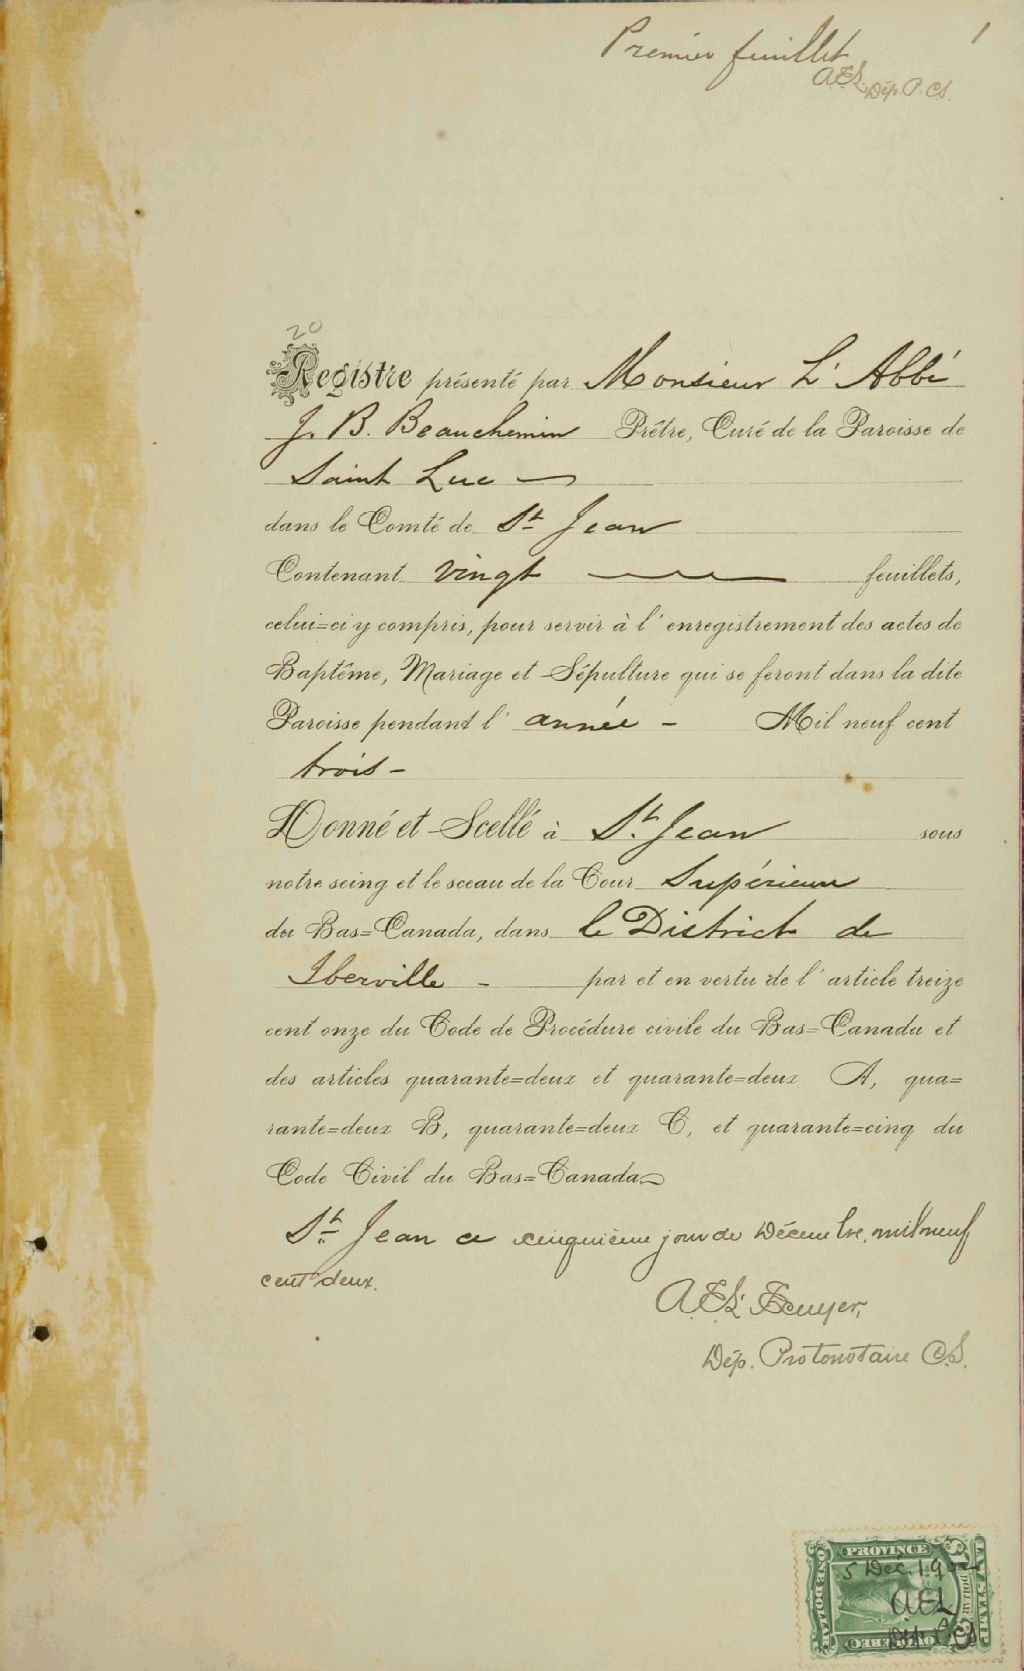 Premier feuillet
1
A.E.L. Dép. P. C.S.
20
Registre présenté par Monsieur L'Abbé
J. B. Beauchemin Prêtre, Curé de la Paroisse de
Saint Luc —
dans le Comté de St Jean
Contenant vingt feuillets,
celui=ci y compris, pour servir à l'enregistrement des actes de
Baptême, Mariage et Sépulture qui se feront dans la dite
Paroisse pendant l'année - Mil neuf cent
trois -
Donné et Scellé à St. Jean sous
notre seing et le sceau de la Cour Supérieure
du Bas=Canada, dans le District de
Iberville - par et en vertu de l'article treize
cent onze du Code de Procédure civile du Bas=Canada et
des articles quarante=deux et quarante=deux A, qua=
rante=deux B, quarante=deux C, et quarante=cinq du
Code Civil du Bas=Canada
St. Jean ce cinquième jour de Décembre, mil neuf
cent deux.
A.E.L. Ecuyer,
Dép. Protonotaire C.S.
PROVINCE
LAW STAMP
5 Déc. 1902
AEL
Dép. P. CS
QUEBEC
ONE DOLLAR